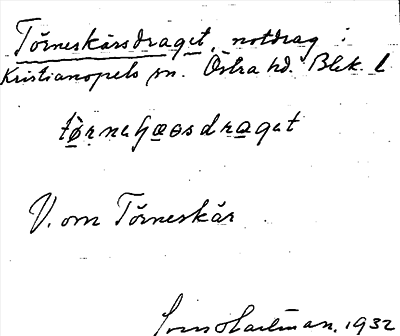 Törneskärsdraget, notdrag i
Kristianopels sn. Östra hd. Blek. l
tø̀rneʃæɷsdraget
V. om Törneskär
Hartman, 1932